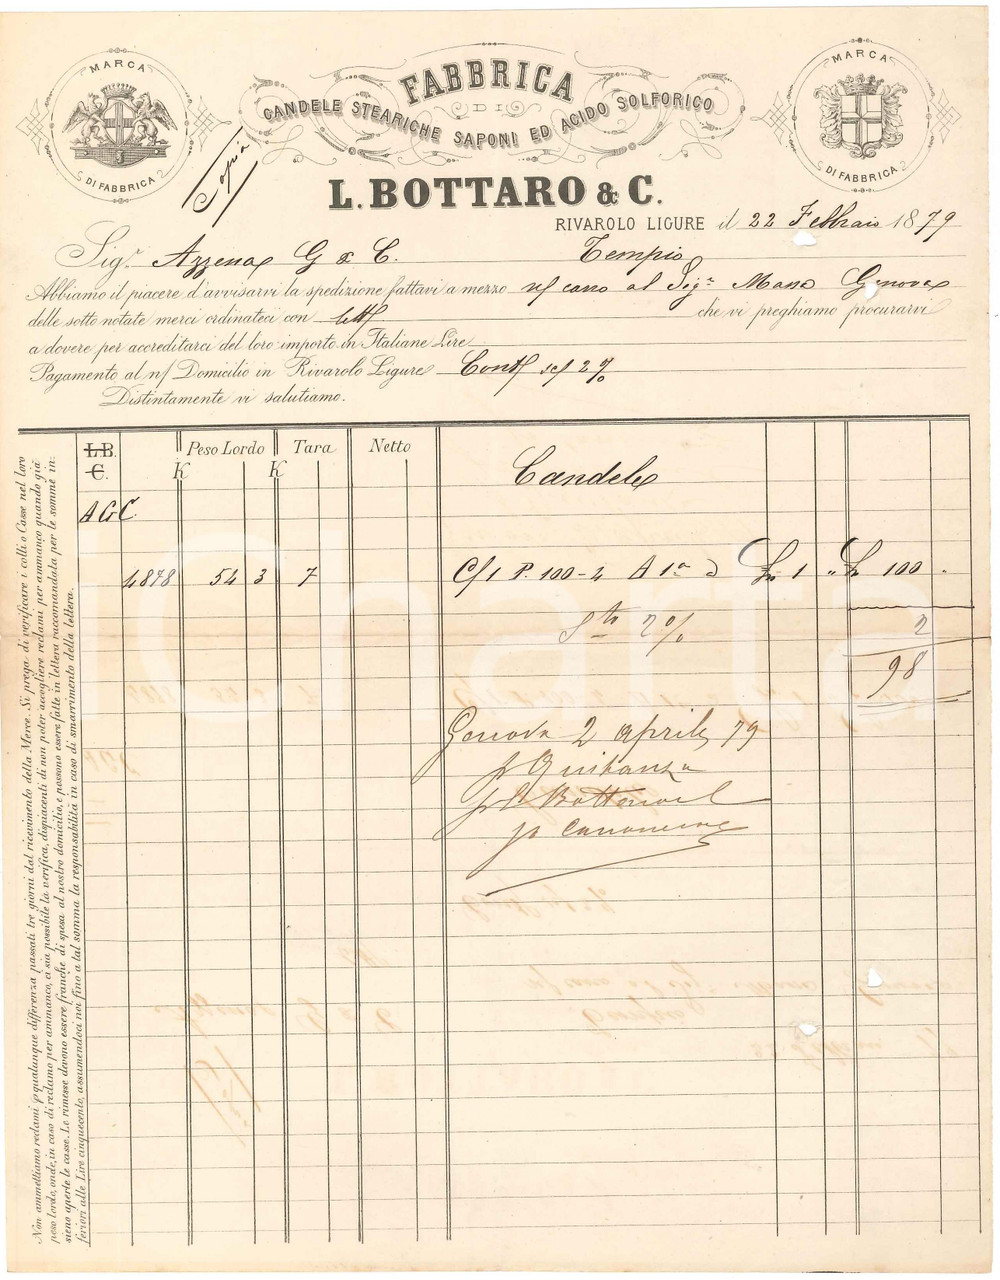 MARCA
DI FABBRICA
FABBRICA
DI
CANDELE STEARICHE SAPONI ED ACIDO SOLFORICO
MARCA
DI FABBRICA
Copia
L. BOTTARO & C.
RIVAROLO LIGURE il 22 Febbraio 1879
Sig.r Azzena G & C. Tempio
Abbiamo il piacere d'avvisarvi la spedizione fattavi a mezzo n/ carro al Sig.r Genova
delle sotto notate merci ordinateci con che vi preghiamo procurarvi
a dovere per accreditarci del loro importo in Italiane Lire
Pagamento al n/ Domicilio in Rivarolo Ligure Cont. 2%
Distintamente vi salutiamo.
L.B. Peso Lordo Tara Netto
C. K K
Candele
AGC
4878 54 3 7 C/1 P. 100-4 A 1a 1 " 100 "
Sto 2% 2
98
Genova 2 Aprile 79
p Quitanza
Non ammettiamo reclami p qualunque differenza passati tre giorni dal ricevimento della Merce. Si prega di verificare i colli o Casse nel loro
peso lordo, onde, in caso di reclamo per ammanco, ci sia possibile la verifica, dispiacenti di non poter accogliere reclami per ammanco quando già
sieno aperte le casse. Le rimesse devono essere franche di spesa al nostro domicilio, e possono essere fatte in lettera raccomandata per le somme in:
feriori alle Lire cinquecento, assumendoci noi fino a tal somma la responsabilità in caso di smarrimento della lettera.